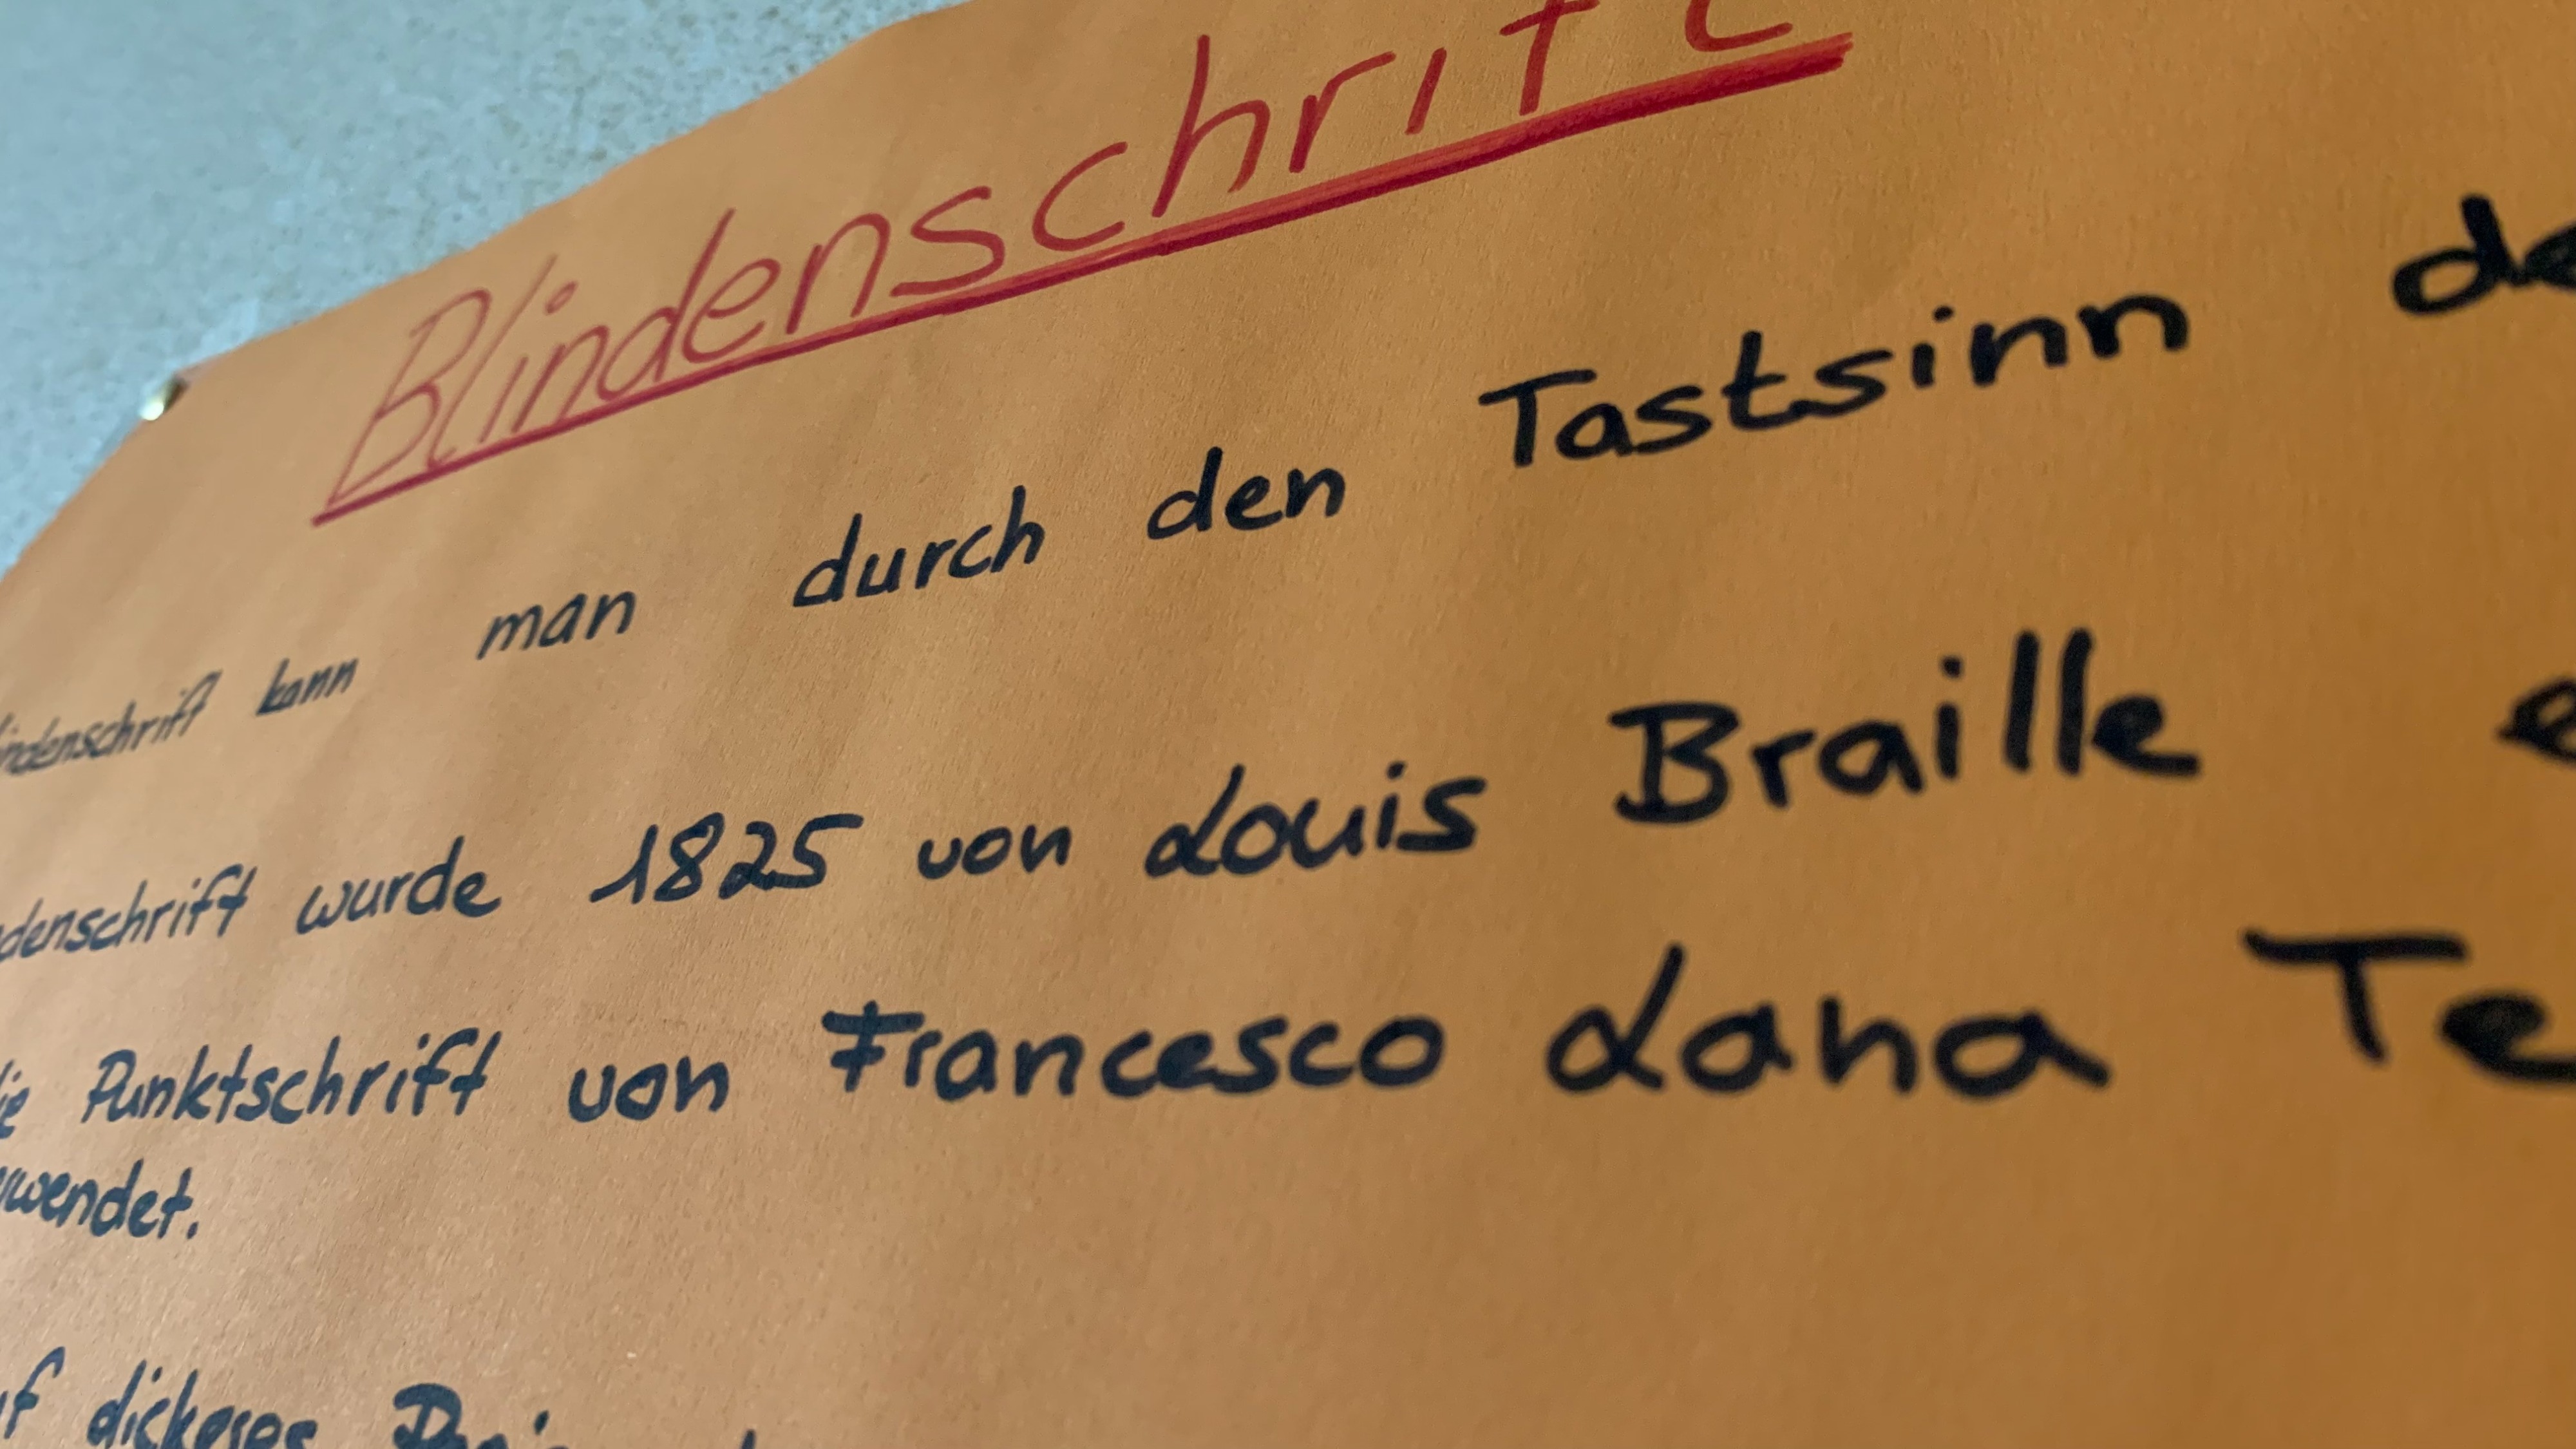 Blindenschrift
lindenschrift kann man durch den Tastsinn de
denschrift wurde 1825 von Louis Braille e
ie Punktschrift von Francesco Lana Te
wendet.
f dickeres